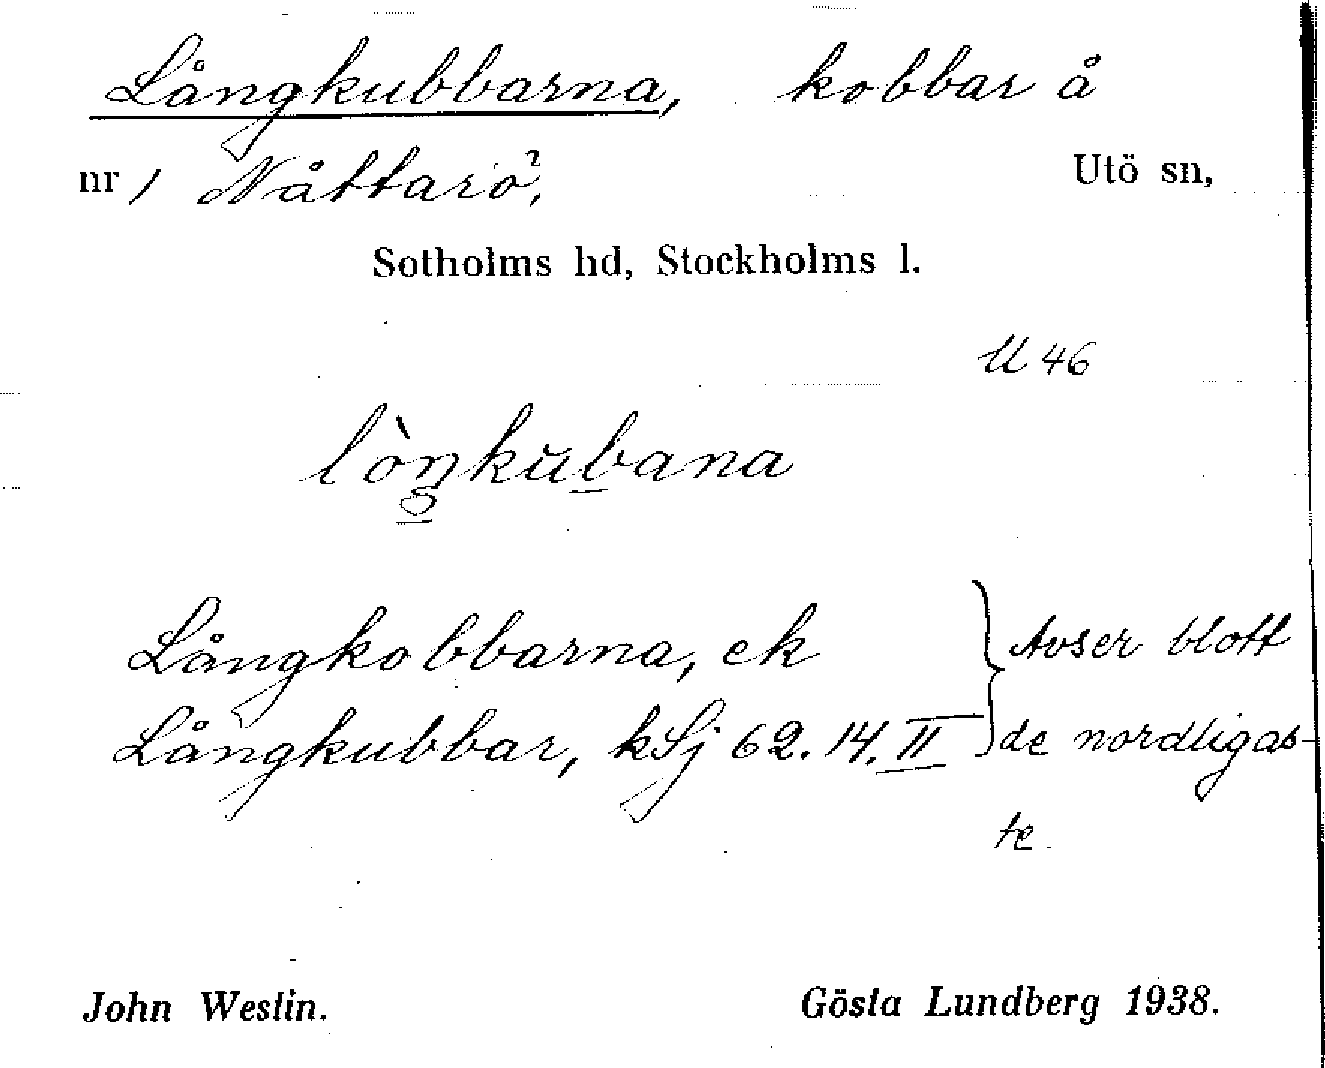 Långkubbarna, kobbar å
nr 1 Nåttarö², Utö sn,
Sotholms hd, Stockholms l.
U 46
lòŋkŭbana
Långkobbarna, ek } Avser blott
Långkubbar, kSj 62.14.II } de nordligas-
te
John Westin. Gösta Lundberg 1938.